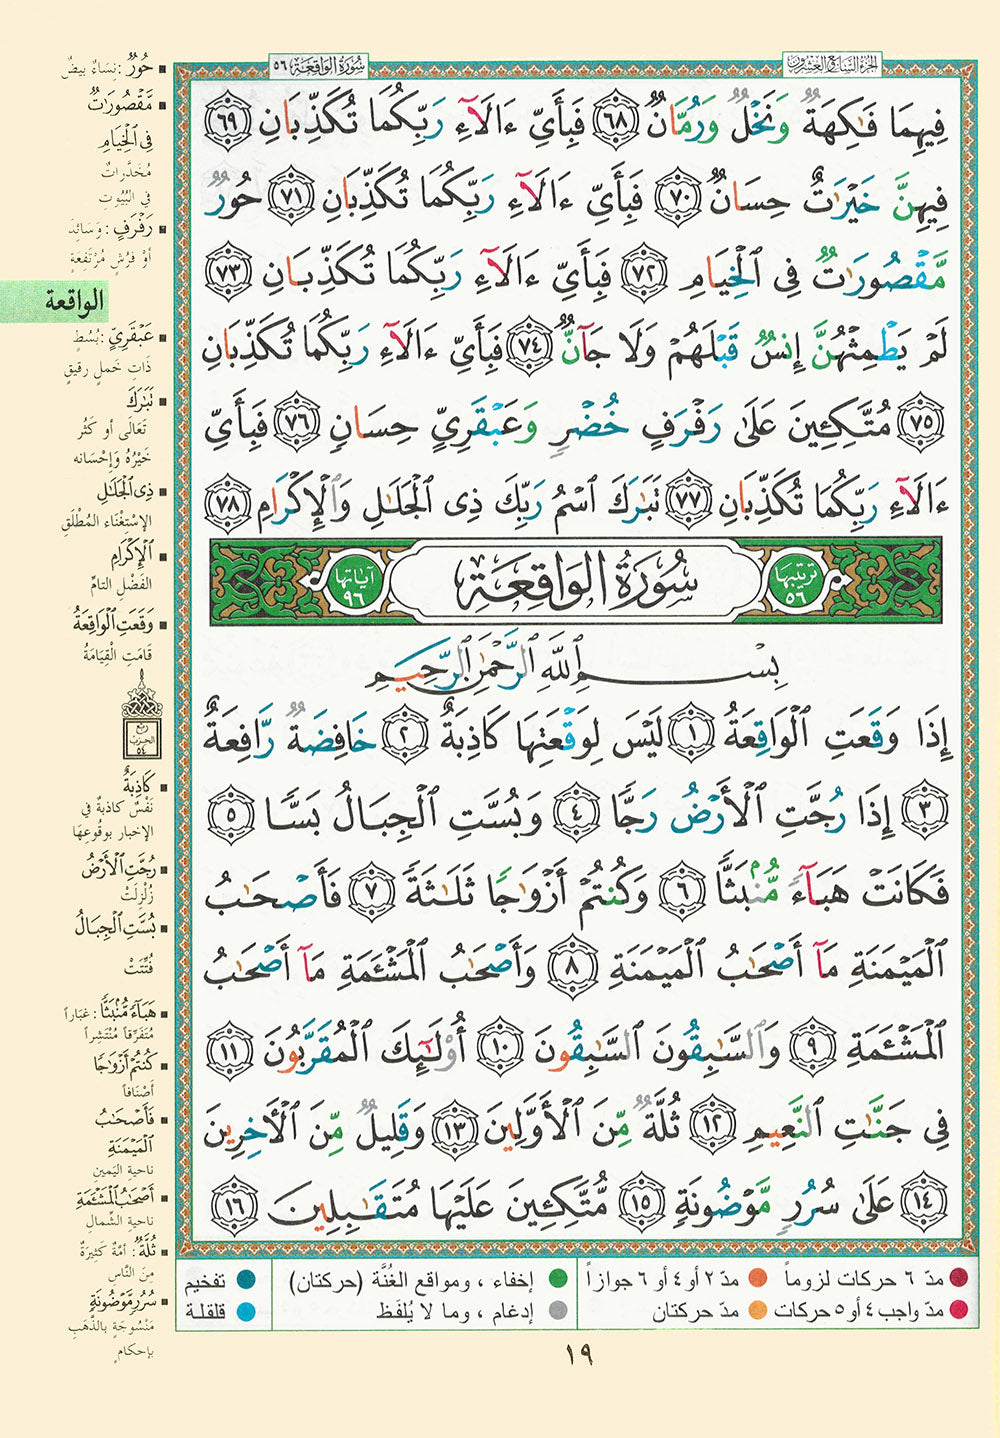 الجزء السابع والعشرون
سورة الواقعة ٥٦
فِيهِمَا فَـٰكِهَةٌ وَنَخْلٌ وَرُمَّانٌ ٦٨ فَبِأَىِّ ءَالَآءِ رَبِّكُمَا تُكَذِّبَانِ ٦٩
فِيهِنَّ خَيْرَٰتٌ حِسَانٌ ٧٠ فَبِأَىِّ ءَالَآءِ رَبِّكُمَا تُكَذِّبَانِ ٧١ حُورٌ
مَّقْصُورَٰتٌ فِى ٱلْخِيَامِ ٧٢ فَبِأَىِّ ءَالَآءِ رَبِّكُمَا تُكَذِّبَانِ ٧٣
لَمْ يَطْمِثْهُنَّ إِنسٌ قَبْلَهُمْ وَلَا جَآنٌّ ٧٤ فَبِأَىِّ ءَالَآءِ رَبِّكُمَا تُكَذِّبَانِ
٧٥ مُتَّكِـِٔينَ عَلَىٰ رَفْرَفٍ خُضْرٍ وَعَبْقَرِىٍّ حِسَانٍ ٧٦ فَبِأَىِّ
ءَالَآءِ رَبِّكُمَا تُكَذِّبَانِ ٧٧ تَبَـٰرَكَ ٱسْمُ رَبِّكَ ذِى ٱلْجَلَـٰلِ وَٱلْإِكْرَامِ ٧٨
ترتيبها ٥٦ سُورَةُ الوَاقِعَةِ آياتها ٩٦
بِسْمِ ٱللَّهِ ٱلرَّحْمَـٰنِ ٱلرَّحِيمِ
إِذَا وَقَعَتِ ٱلْوَاقِعَةُ ١ لَيْسَ لِوَقْعَتِهَا كَاذِبَةٌ ٢ خَافِضَةٌ رَّافِعَةٌ
٣ إِذَا رُجَّتِ ٱلْأَرْضُ رَجًّا ٤ وَبُسَّتِ ٱلْجِبَالُ بَسًّا ٥
فَكَانَتْ هَبَآءً مُّنۢبَثًّا ٦ وَكُنتُمْ أَزْوَٰجًا ثَلَـٰثَةً ٧ فَأَصْحَـٰبُ
ٱلْمَيْمَنَةِ مَآ أَصْحَـٰبُ ٱلْمَيْمَنَةِ ٨ وَأَصْحَـٰبُ ٱلْمَشْـَٔمَةِ مَآ أَصْحَـٰبُ
ٱلْمَشْـَٔمَةِ ٩ وَٱلسَّـٰبِقُونَ ٱلسَّـٰبِقُونَ ١٠ أُو۟لَـٰٓئِكَ ٱلْمُقَرَّبُونَ ١١
فِى جَنَّـٰتِ ٱلنَّعِيمِ ١٢ ثُلَّةٌ مِّنَ ٱلْأَوَّلِينَ ١٣ وَقَلِيلٌ مِّنَ ٱلْـَٔاخِرِينَ
١٤ عَلَىٰ سُرُرٍ مَّوْضُونَةٍ ١٥ مُّتَّكِـِٔينَ عَلَيْهَا مُتَقَـٰبِلِينَ ١٦
حُورٌ : نِسَاءٌ بيضٌ
مَّقْصُورَٰتٌ
فِى ٱلْخِيَامِ
مُخَدَّراتٌ
في البُيُوتِ
رَفْرَفٍ : وَسَائِدَ
أوْ فُرُشٍ مُرْتَفِعَةٍ
الواقعة
عَبْقَرِىٍّ : بُسُطٍ
ذَاتِ خَملٍ رقيقٍ
تَبَـٰرَكَ
تَعَالَى أو كَثُرَ
خَيْرُهُ وَإحْسَانه
ذِى ٱلْجَلَـٰلِ
الإسْتِغْنَاء المُطْلَقِ
ٱلْإِكْرَامِ
الفَضْلِ التامِّ
وَقَعَتِ ٱلْوَاقِعَةُ
قَامَتِ الْقِيَامَةُ
ربع
الحزب
٥٤
كَاذِبَةٌ
نَفْسٌ كاذبةٌ في
الإخبار بوقُوعِهَا
رُجَّتِ ٱلْأَرْضُ
زُلْزِلَتْ
بُسَّتِ ٱلْجِبَالُ
فُتِّتَتْ
هَبَآءً مُّنۢبَثًّا : غبَاراً
مُتَفَرِّقاً مُنْتَشِراً
كُنتُمْ أَزْوَٰجًا
أَصْنَافاً
فَأَصْحَـٰبُ
ٱلْمَيْمَنَةِ
ناحيةِ اليَمينِ
أَصْحَـٰبُ ٱلْمَشْـَٔمَةِ
ناحية الشِّمالِ
ثُلَّةٌ : أُمَّةٌ كَثِيرَةٌ
مِنَ النَّاسِ
سُرُرٍ مَّوْضُونَةٍ
مَنْسُوجَةٍ بالذَّهَبِ
بإحكامٍ
مدّ ٦ حركات لزوماً مدّ ٢ أو ٤ أو ٦ جوازاً إخفاء ، ومواقع الغُنَّة (حركتان) تفخيم
مدّ واجب ٤ أو ٥ حركات مدّ حركتان إدغام ، وما لا يُلفَظ قلقلة
١٩